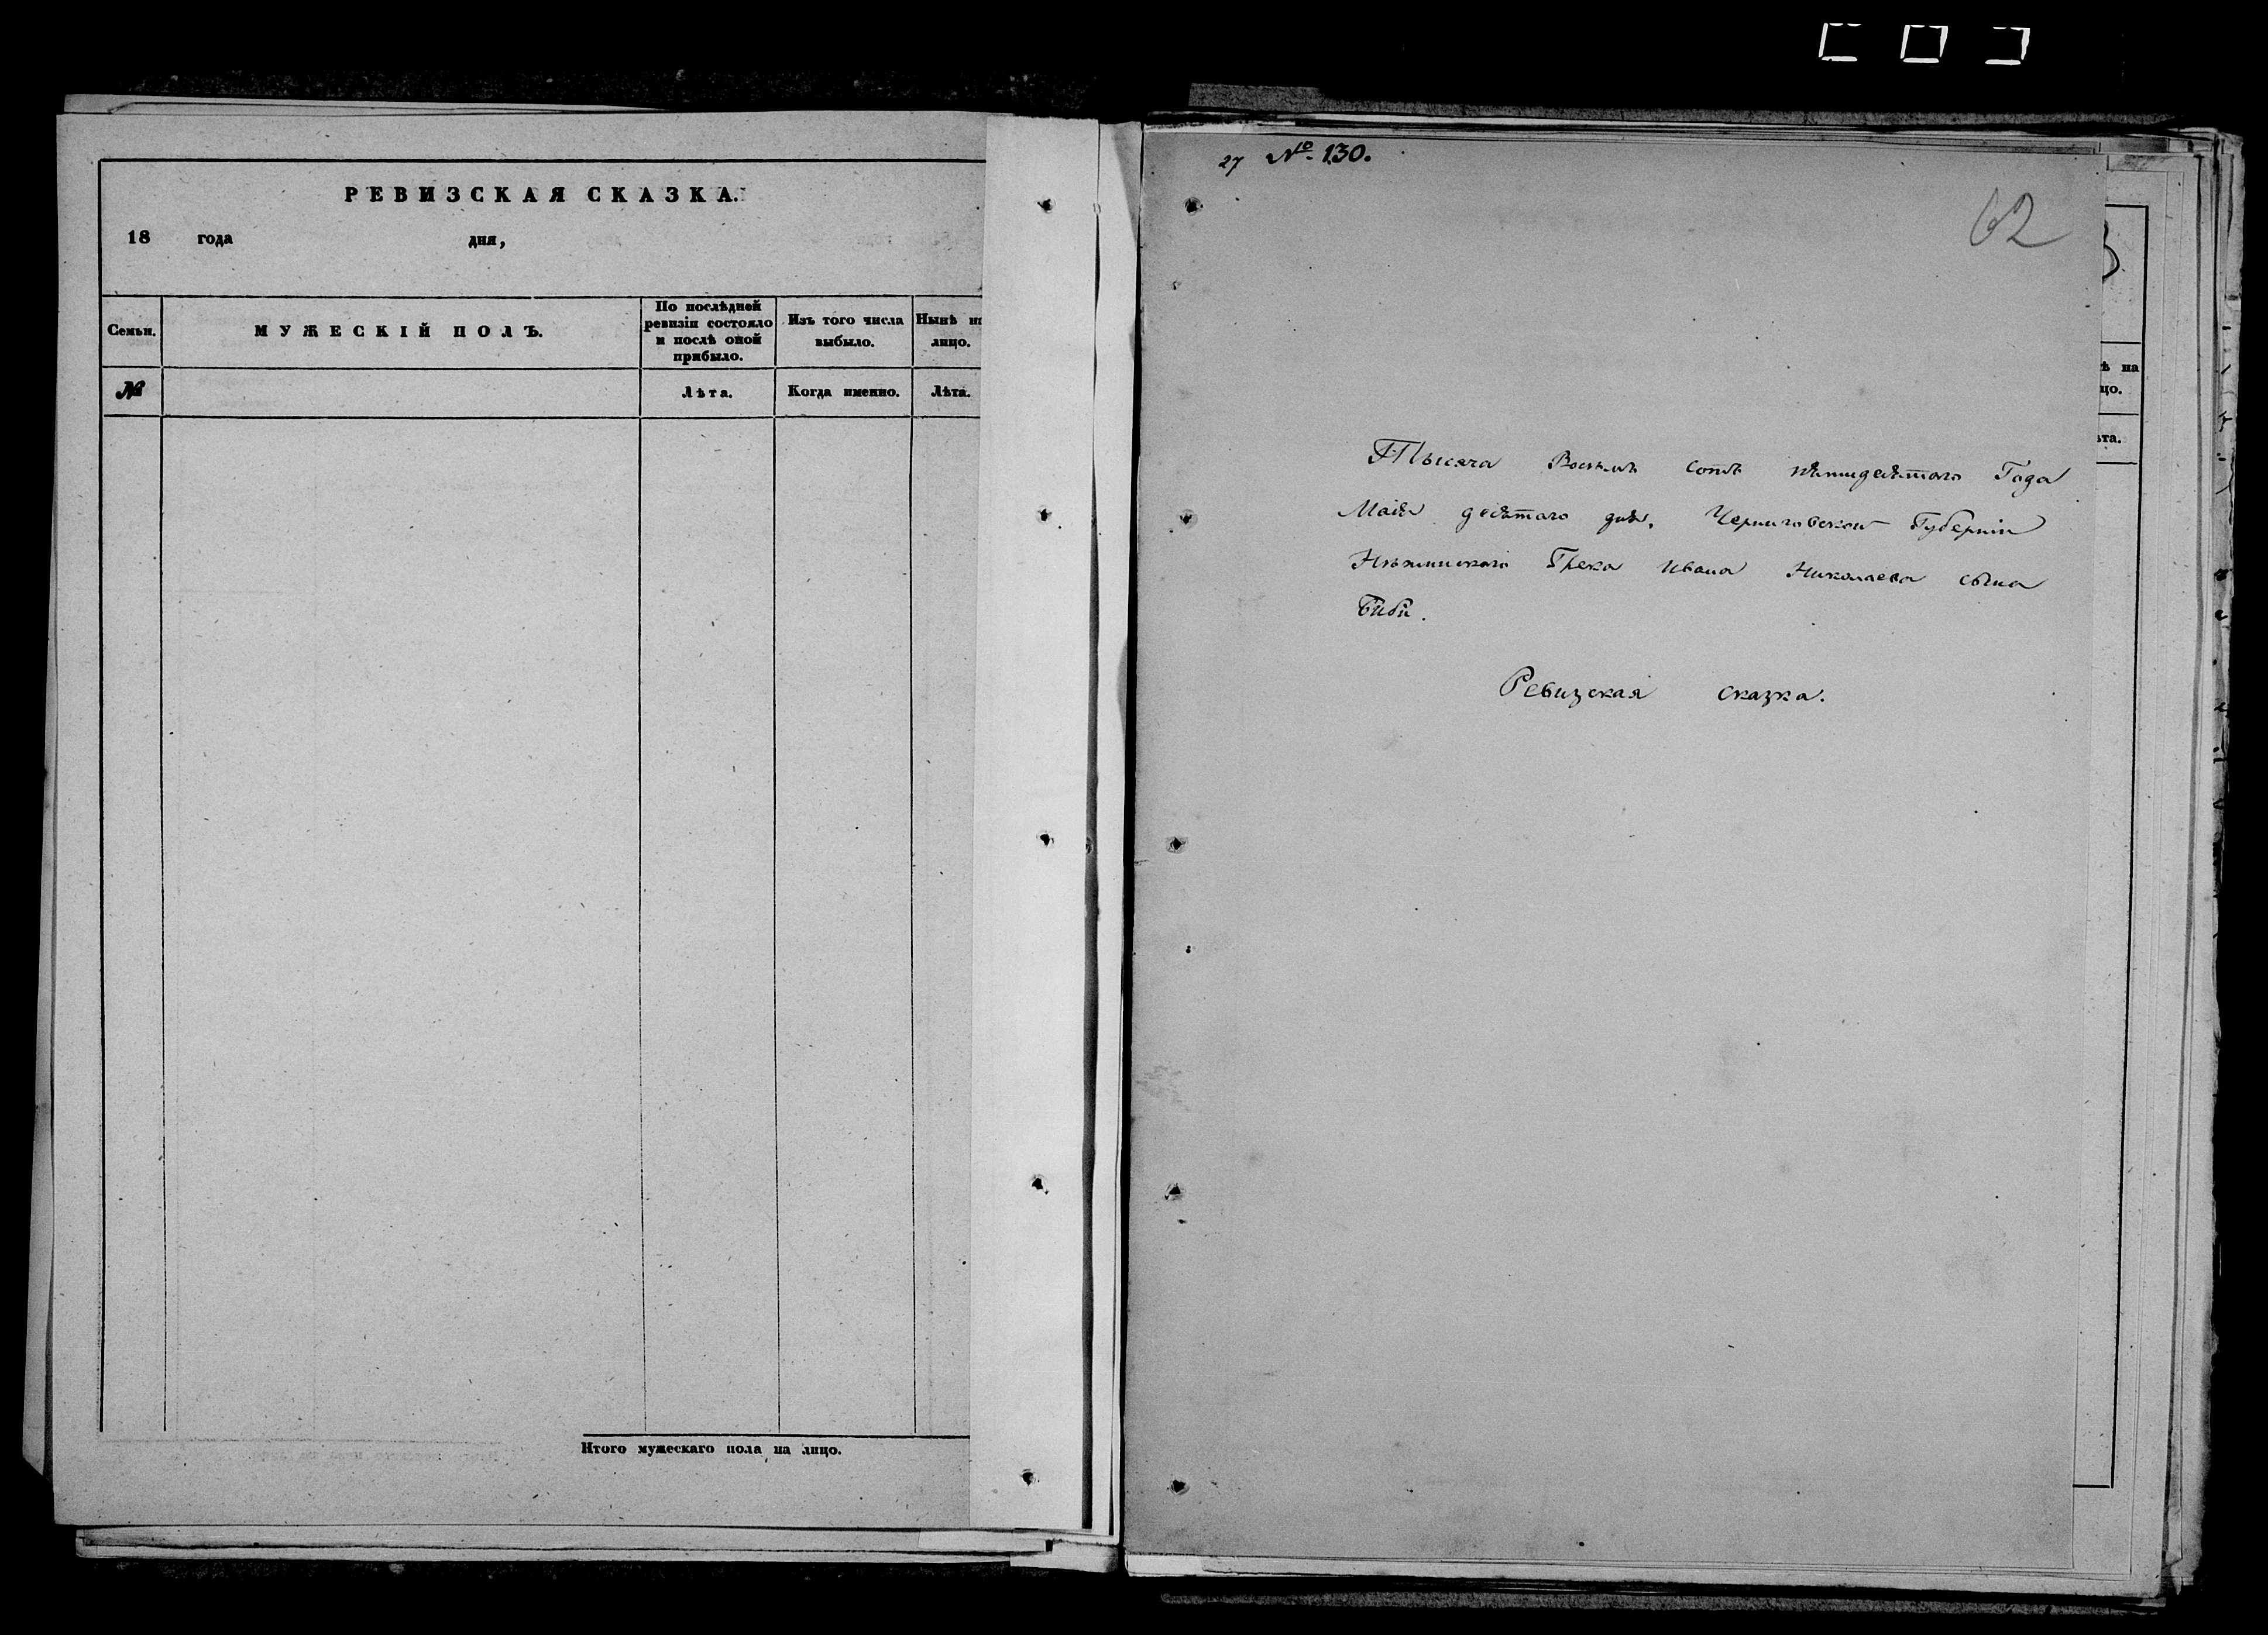 РЕВИЗСКАЯ СКАЗКА.
18 года дня,
Семьи. МУЖЕСКІЙ ПОЛЪ. По послѣдней ревизіи состояло и послѣ оной прибыло. Изъ того числа выбыло. Нынѣ на лицо.
№ Лѣта. Когда именно. Лѣта.
Итого мужескаго пола на лицо.
27 № 130.
62
Тысяча Восемь сотъ пѣтидесѣтого Года
Маіѣ десѣтаго днѣ. Черниговской Губерніи
Нѣжинскаго Грека Ивана Николаева сына
Биби.
Ревизская сказка.
ѣ на
цо.
ѣта.